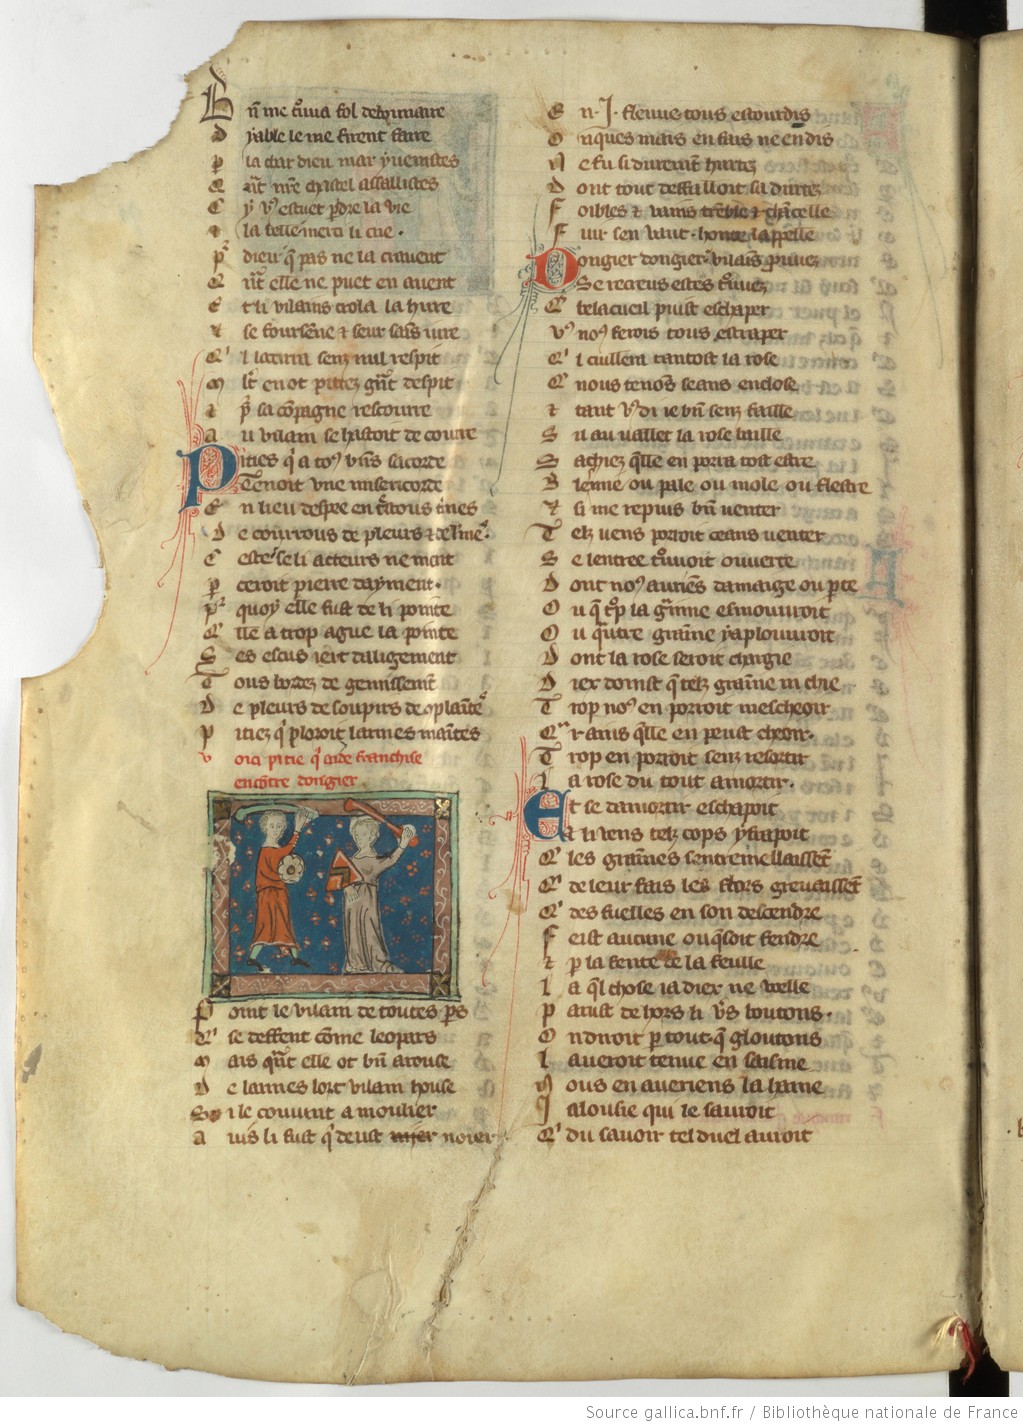 Bn̄ me truua fol debonnaire
dyable le me firent faire
pla char dieu mar y uenistes
Qñt nr̄e chastel assallistes
Cy v9 estuet p̄dre la vie
⁊ la belle merci li crie.
pʳ dieu q̄ pas ne la crauent
Qñt elle ne puet en auent
Et li vilains crola la hure
⁊ se foursēne ⁊ seur sains iure
Qʼl locirra senz nul respit
mlt̄ en ot pitiez gñt despit
⁊ pʳ sa cōpagne rescourre
au vilain se hastoit de courre
Pities qʼ a to9 biēs sacorde
Tenoit vne misericorde
En lieu despee en tʳatous tʼmes
De courrous de pleurs ⁊ de lʼmeˢ.
Ceste se li acteurs ne ment
pceroit pierre dayment.
pʳ quoy elle fust de li pointe
Qʼlle a trop ague la pointe
Ses escus iert daligement
Tous bordez de gemissement
De pleurs de soupirs de 9plaiteˢ
pitiez qʼ ploroit larmes maītes
voici pitie qʼ aide franchise
encōtre dongier.
Point le vilain de toutes ps
Qʼ se deffent cōme leopars
mais qñt elle ot bn̄ arouse
De larmes lort vilain house
Si le couuint amoulier
Auis li fust qʼ deust noier
En .J. fleuue tous estourdis
Onques mais en fais ne en dis
Ne fu si durement hurtez
Dont tout deffalloit sa durtez
Foibles ⁊ vains trēble ⁊ chācelle
Fuir sen vaut. honte lappelle
Dongier dongier vilaīs prouuez
Se recreus estes truuez
Qʼ belacueil puist eschaper
v9 no9 ferois tous estraper
Qʼl cuillera tantost la rose
Qʼ nous tenōs seans enclose
⁊ tant v9 di ie bn̄ senz faille
Sil au uallet la rose baille
Sachiez qʼlle en porra tost estre
Blesme ou pale ou mole ou flestre
⁊ si me repuis bn̄ uenter
Telz uens porroit ceans venter
Se lentree truuoit ouuerte
Dont no9 auriēs damaige ou pte
Ou q̄ trop la grainne esmouuroit
Ou qʼ autre grainne y aplouuroit
Dont la rose seroit chargie
Diex doinst q̄ telz grainne ni chie
Trop no9 en porroit mescheoir
Qʳ ains qʼlle en peust cheoir.
Trop en porroit senz resortir
La rose du tout amortir.
Et se damortir eschapoit
Et li uens telz cops y frapoit
Qʼ les grainnes sentremellaissēt
Qʼ de leur fais les flors greuaissēt
Qʼ des fuelles en son descendre
Feist aucune ou q̄ soit fendre
⁊ p la fente de la feulle
La q̄l chose ia diex ne veelle
Parust dehors li v̄s boutons.
On diroit p tout q̄ gloutons
Laueroit tenue en saisine
Nous en aueriens la haine
Jalousie qui le sauroit
Qʼ du sauoir tel duel auroit